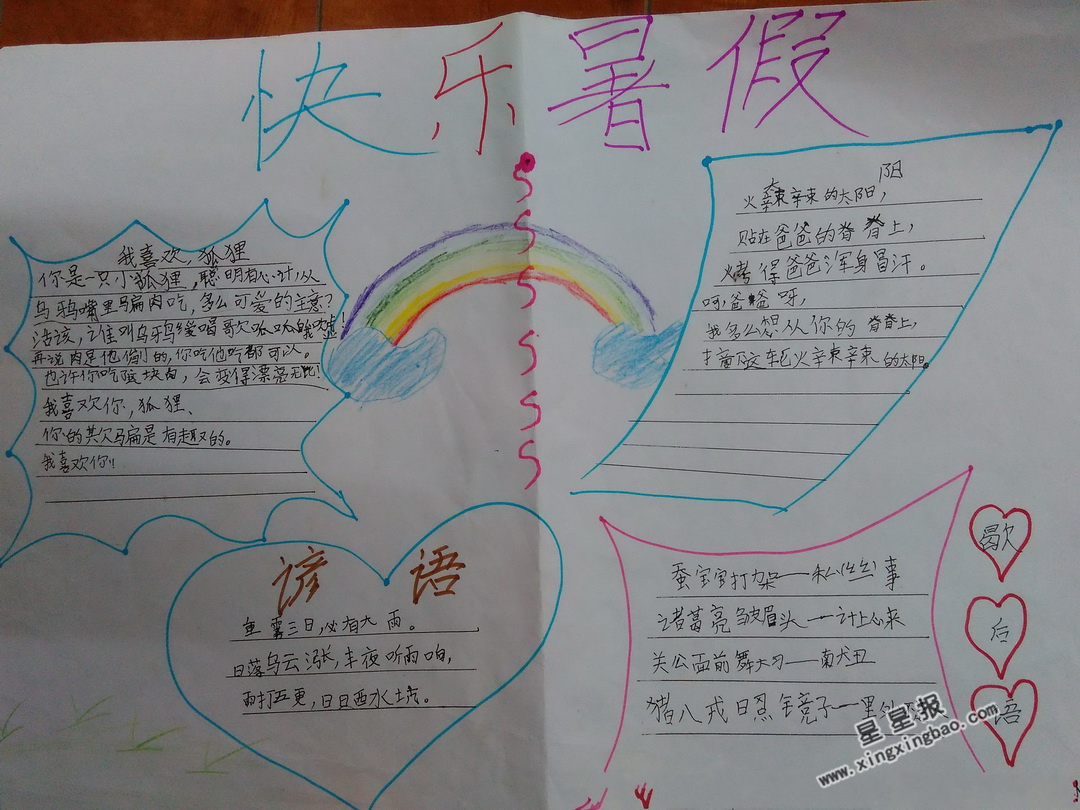 快乐暑假
我喜欢,狐狸
你是一只小狐狸,聪明有心计,从
乌鸦嘴里骗肉吃,多么可爱的主意?
活该,谁叫乌鸦爱唱歌
再说肉是他偷的,你吃他吃都可以。
也许你吃这块肉,会变得漂亮无比!
我喜欢你,狐狸、
你的其欠骗是有趣的。
我喜欢你!!
阳
火辣辣的太阳,
贴在爸爸的脊脊上,
火烤得爸爸浑身冒汗。
呵,爸爸呀,
我多么想从你的脊脊上,
这轮火辣辣的太阳。
谚语
重雾三日,必有大雨。
日落乌云涨,半夜听雨响,
雨打五更,日日西水坑。
蚕宝宝打架——私(丝)事
诸葛亮皱眉头——计上心来
关公面前舞大刀——南犬丑
猪八戒日照镜子—里外
歇后语
星星报
www.xingxingbao.com